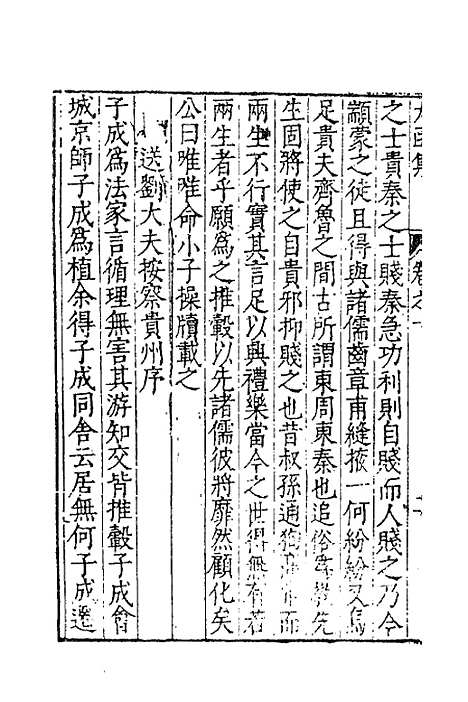 太函集 卷之
之士貴秦之士賤秦急功利則自賤而人賤之乃今
顓蒙之徒且得與諸儒齒章甫縫掖一何紛紛又烏
足貴夫齊魯之間古所謂東周東秦也追俗為學先
生固將使之自貴邪抑賤之也昔叔孫通 而
兩生不行實其言足以興禮樂當今之世得無有若
兩生者乎願為之推轂以先諸儒彼將靡然顧化矣
公曰唯唯命小子操牘載之
送劉大夫按察貴州序
子成為法家言循理無害其游知交皆推轂子成會
城京師子成為植余得子成同舍云居無何子成遷